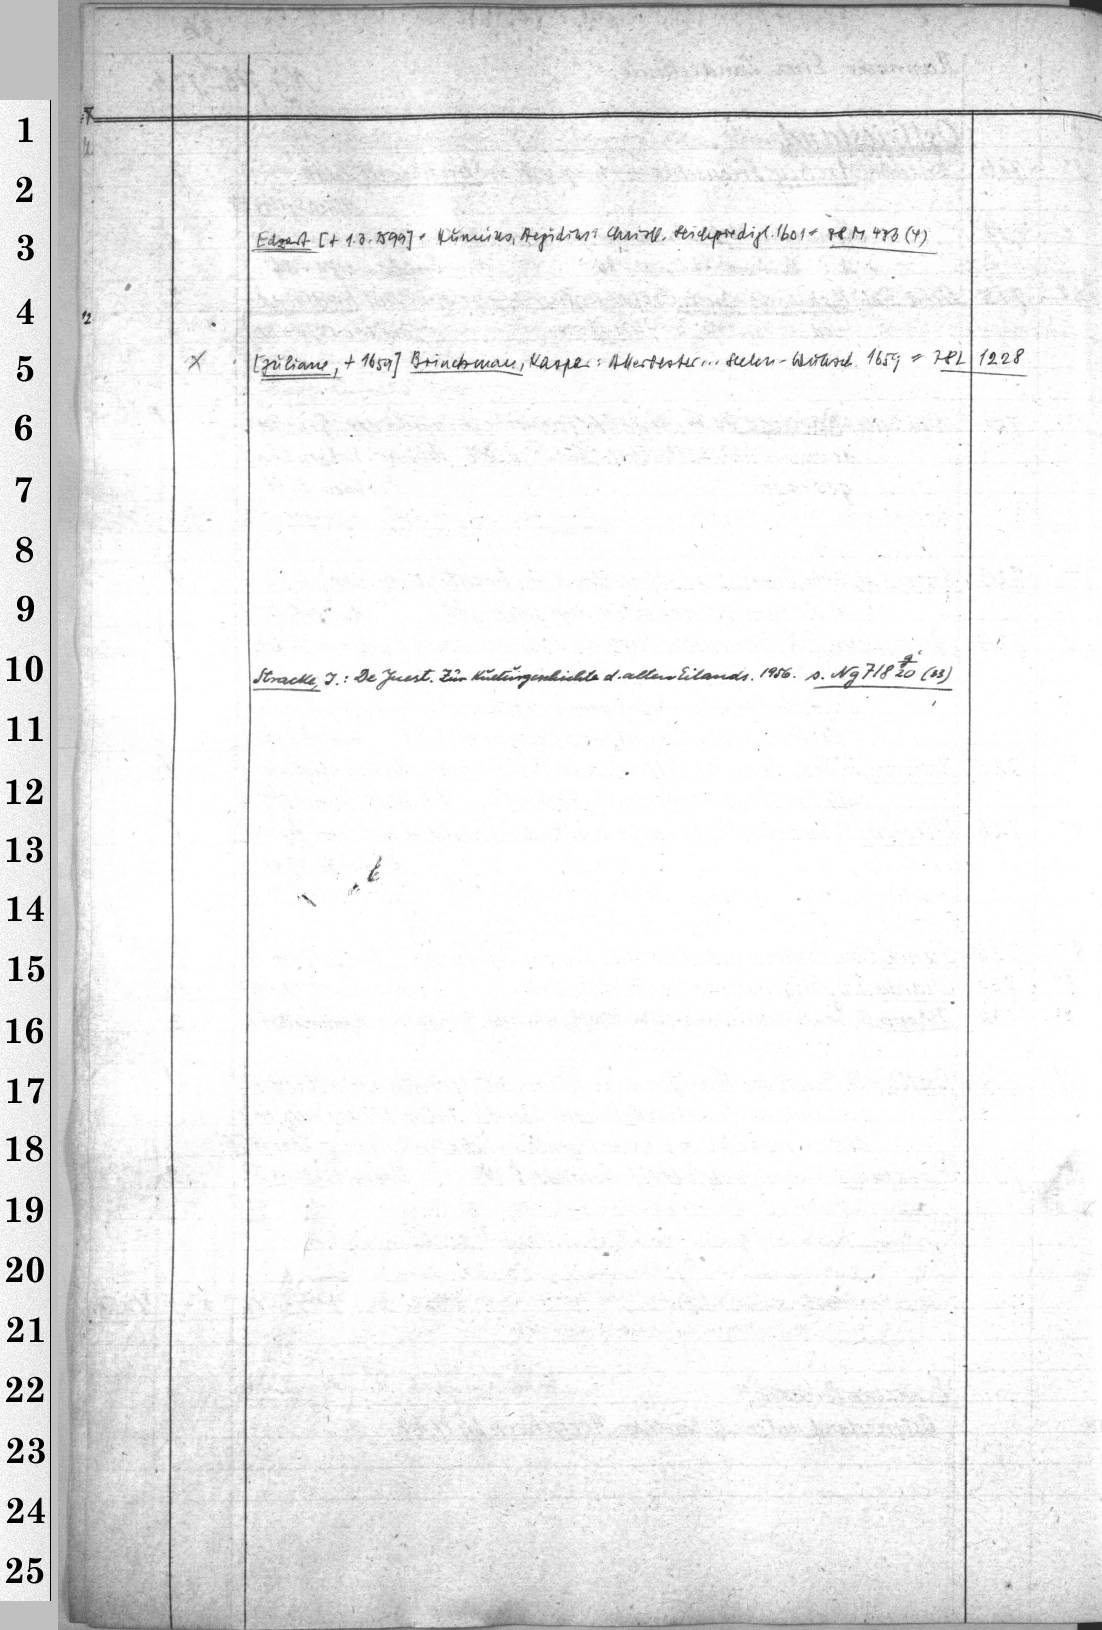 1
2
Edzart [+ 1.3.1599] = Hunnius, Aegidius: Christl. Leichpredigt. 1601 = 78 M 473 (4)
3
4
12
x [Juliane, + 1659] Brinckmann, Kaspar: Allerbester... Seelen-Wunsch. 1659 = 78 L 1228
5
6
7
8
9
Stracke, J.: De Juest. Zur Kulturgeschichte d. alten Eilands. 1956. s. Ng 718 g/20 (33)
10
11
12
13
14
15
16
17
18
19
20
21
22
23
24
25